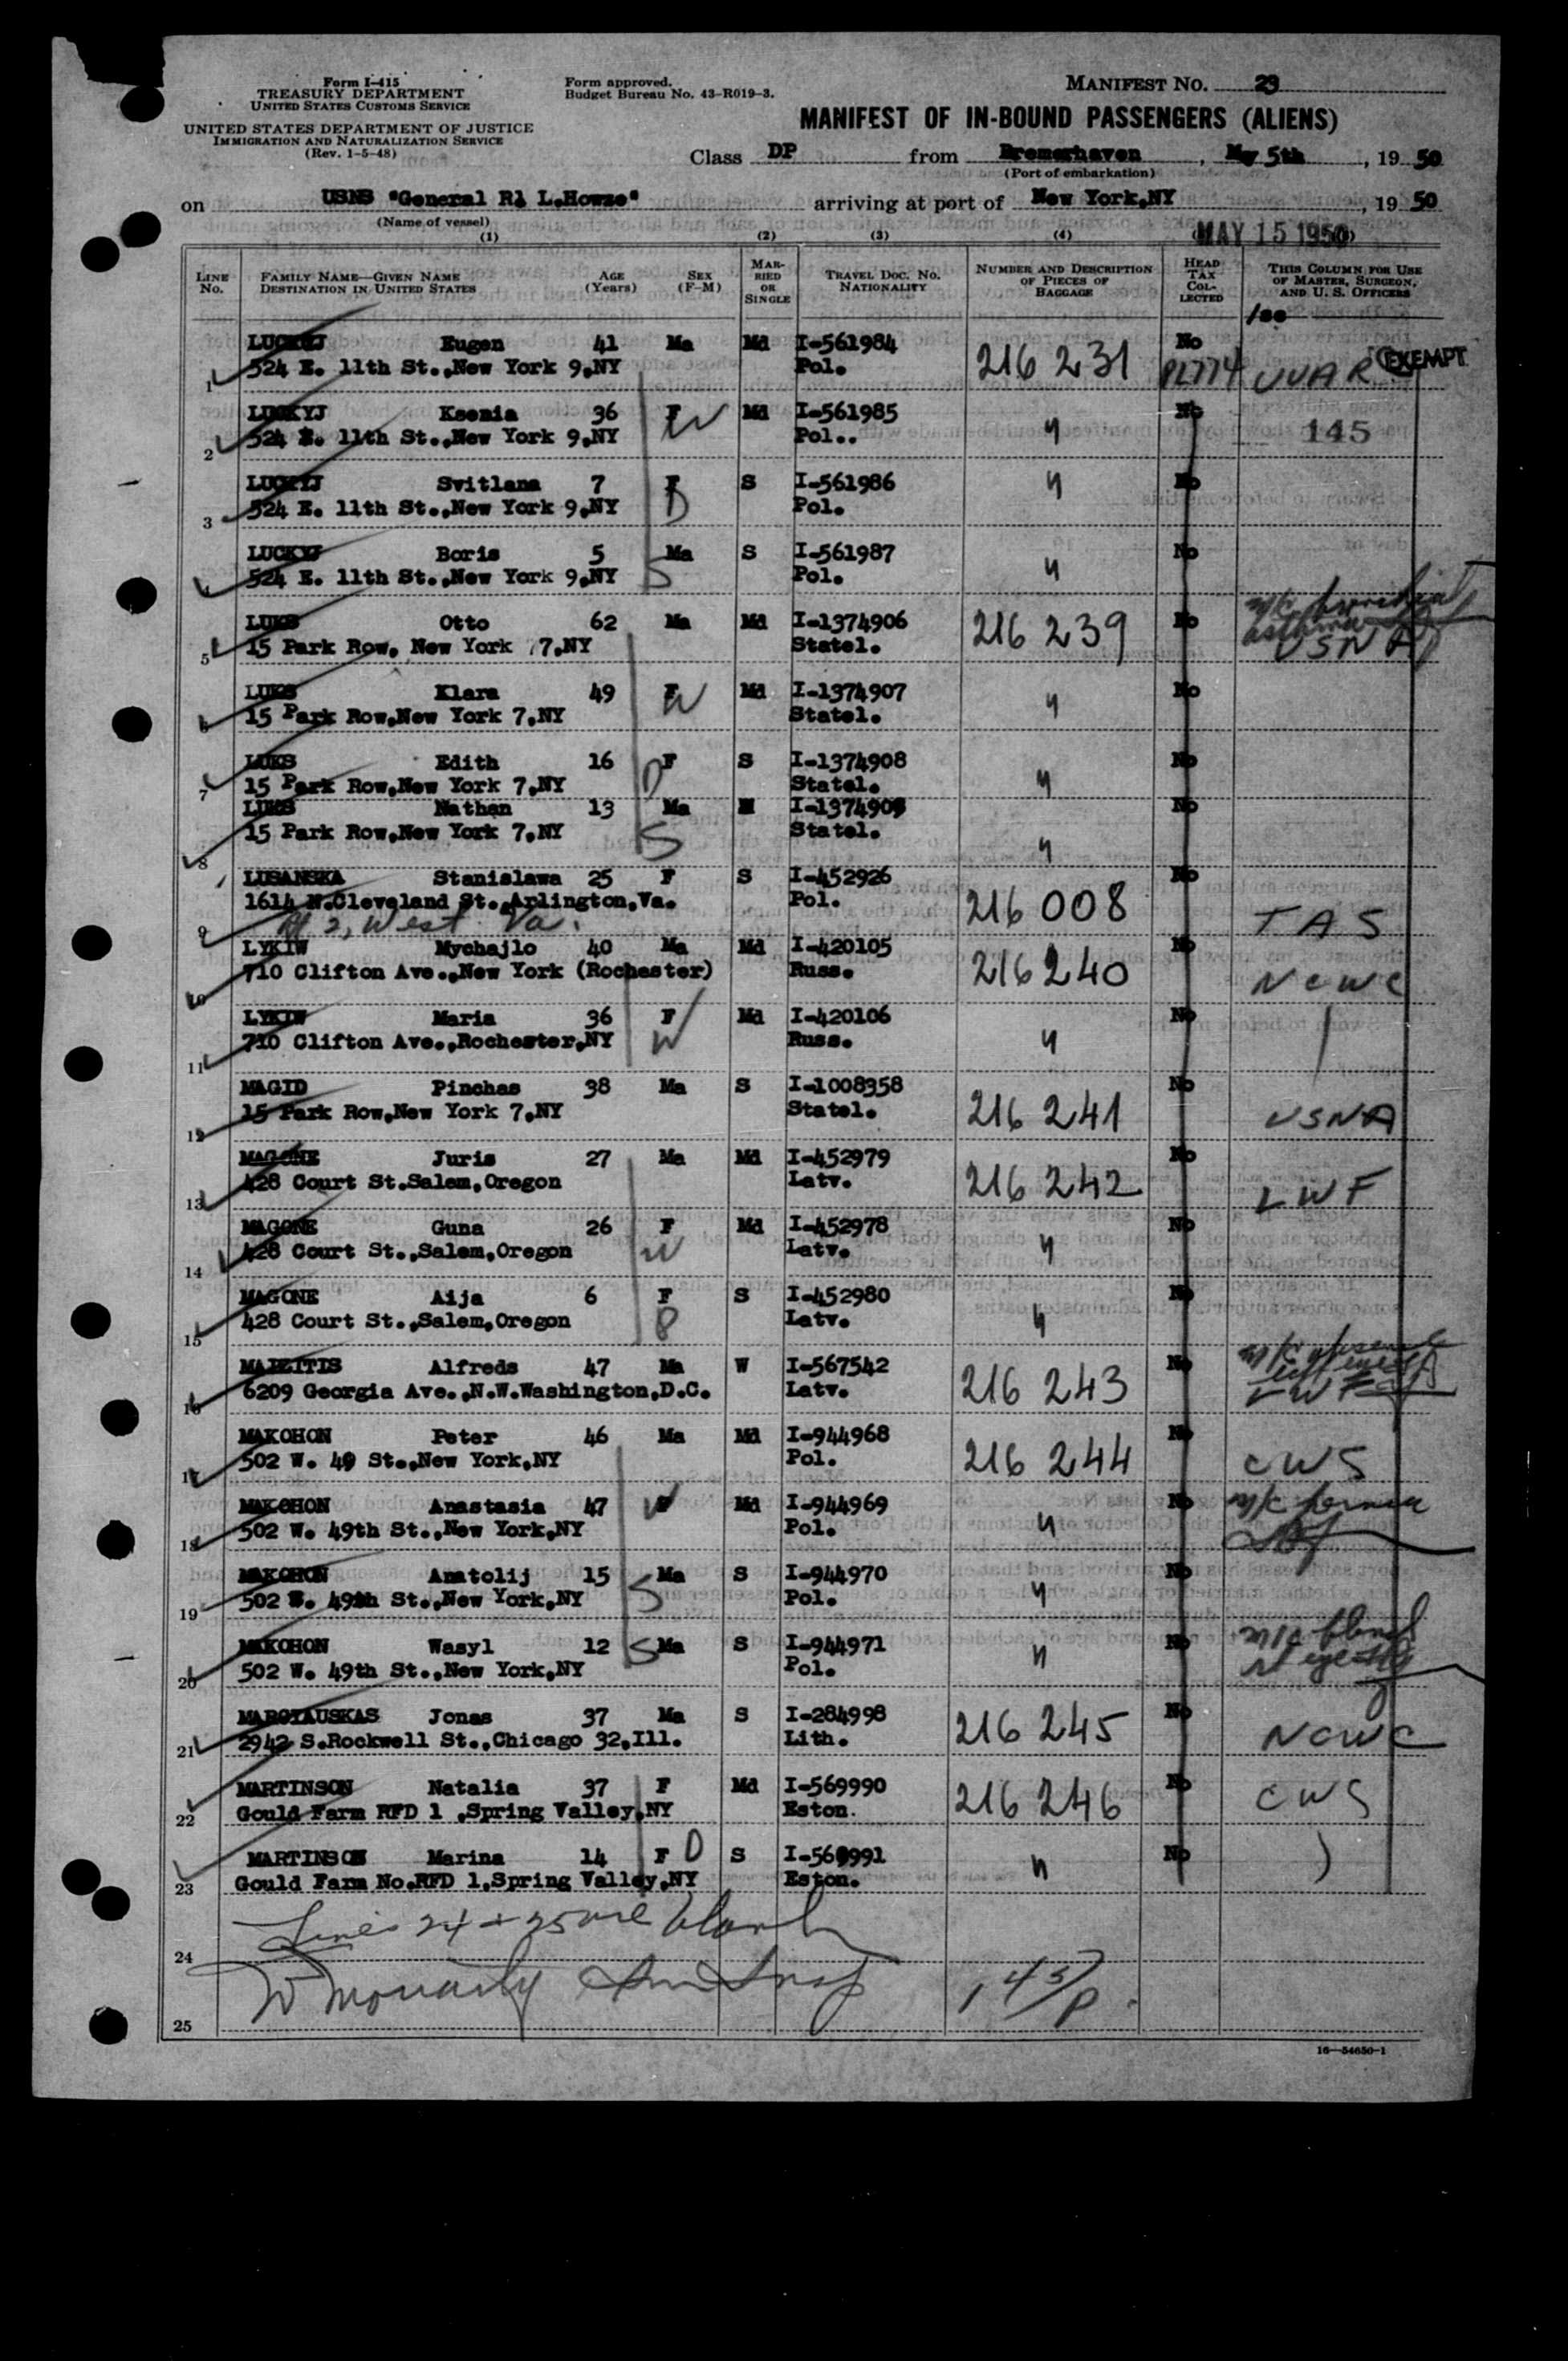 Form I-415
TREASURY DEPARTMENT
UNITED STATES CUSTOMS SERVICE
UNITED STATES DEPARTMENT OF JUSTICE
IMMIGRATION AND NATURALIZATION SERVICE
(Rev. 1-5-48)
Form approved.
Budget Bureau No. 43-R019-3.
MANIFEST No. 23
MANIFEST OF IN-BOUND PASSENGERS (ALIENS)
Class DP from Bremerhaven, May 5th, 19 50
(Port of embarkation)
on USNS "General R. L.Howze" arriving at port of New York,NY, 19 50
(Name of vessel)
MAY 15 1950
(1) (2) (3) (4)
LINE No. FAMILY NAME—GIVEN NAME DESTINATION IN UNITED STATES AGE (Years) SEX (F-M) MARRIED OR SINGLE TRAVEL DOC. NO. NATIONALITY NUMBER AND DESCRIPTION OF PIECES OF BAGGAGE HEAD TAX COLLECTED THIS COLUMN FOR USE OF MASTER, SURGEON, AND U. S. OFFICERS
LUCKYJ Eugen 41 Ma Md I-561984 No
1 524 E. 11th St.,New York 9,NY Pol. 216 231 PL774 UUAR EXEMPT
LUCKYJ Ksenia 36 F W Md I-561985 No
2 524 E. 11th St.,New York 9,NY Pol.. " 145
LUCKYJ Svitlana 7 F D S I-561986 " No
3 524 E. 11th St.,New York 9,NY Pol.
LUCKYJ Boris 5 Ma S S I-561987 No
4 524 E. 11th St.,New York 9,NY Pol. "
LUKS Otto 62 Ma Md I-1374906 216 239 No m/c bronchial asthma
5 15 Park Row, New York 7,NY Statel. USNA
LUKS Klara 49 F W Md I-1374907 No
6 15 Park Row,New York 7,NY Statel. "
LUKS Edith 16 F D S I-1374908 No
7 15 Park Row,New York 7,NY Statel. "
LUKS Nathan 13 Ma I-1374909 No
8 15 Park Row,New York 7,NY S Statel. "
LUSANSKA Stanislawa 25 F S I-452926 No
1614 N.Cleveland St.,Arlington,Va. Pol. 216 008 TAS
9 2, West Va.
LYKIW Mychajlo 40 Ma Md I-420105 No
10 710 Clifton Ave.,New York (Rochester) Russ. 216 240 NCWC
LYKIW Maria 36 F W Md I-420106 No
11 710 Clifton Ave.,Rochester,NY Russ. "
MAGID Pinchas 38 Ma S I-1008358 No
12 15 Park Row,New York 7,NY Statel. 216 241 USNA
MAGONE Juris 27 Ma Md I-452979 No
13 428 Court St.Salem,Oregon Latv. 216 242 LWF
MAGONE Guna 26 F W Md I-452978 No
14 428 Court St.,Salem,Oregon Latv. "
MAGONE Aija 6 F D S I-452980 No
15 428 Court St.,Salem,Oregon Latv. "
MAIZITIS Alfreds 47 Ma W I-567542 No
16 6209 Georgia Ave.,N.W.Washington,D.C. Latv. 216 243 LWF
MAKOHON Peter 46 Ma Md I-944968 No
17 502 W. 49 St.,New York,NY Pol. 216 244 CWS
MAKOHON Anastasia 47 W Md I-944969 No m/c hernia
18 502 W. 49th St.,New York,NY Pol. "
MAKOHON Anatolij 15 Ma S S I-944970 No
19 502 W. 49th St.,New York,NY Pol. "
MAKOHON Wasyl 12 S Ma S I-944971 No m/c blind rt eye
20 502 W. 49th St.,New York,NY Pol. "
MARCIAUSKAS Jonas 37 Ma S I-284998 No
21 2942 S.Rockwell St.,Chicago 32,Ill. Lith. 216 245 NCWC
MARTINSON Natalia 37 F Md I-569990 No
22 Gould Farm RFD 1 ,Spring Valley,NY Eston. 216 246 CWS
MARTINSON Marina 14 F D S I-569991 No
23 Gould Farm No.RFD 1,Spring Valley,NY Eston. "
Lines 24 + 25 are blank
24
W Moriarty Imm Insp
25
16—54650-1